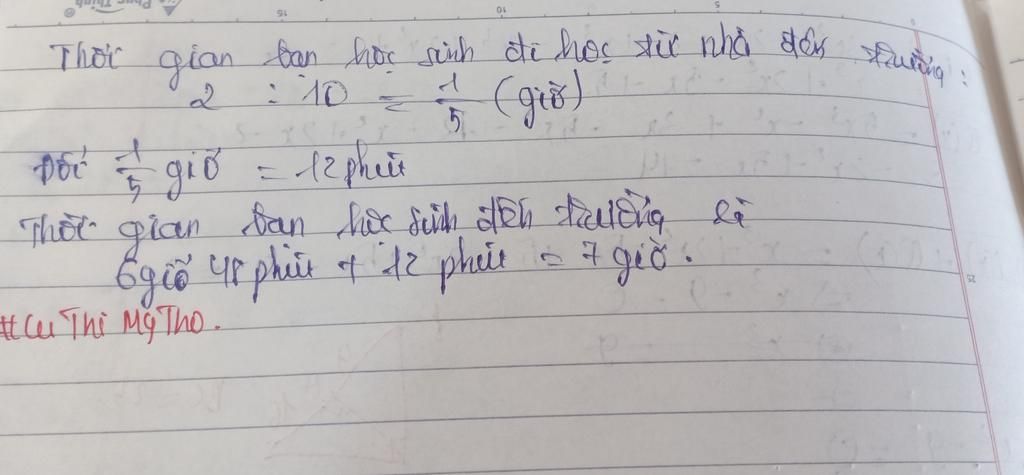 Thời gian bạn học sinh đi học từ nhà đến trường :
2 : 10 = 1/5 (giờ)
Đổi 1/5 giờ = 12 phút
Thời gian bạn học sinh đến trường là
6 giờ 48 phút + 12 phút = 7 giờ.
#Cu Thi Mỹ Tho.